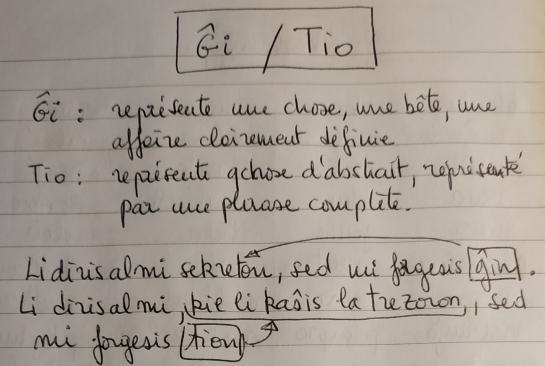 Ĝi / Tio
Ĝi : représente une chose, une bête, une
affaire clairement définie
Tio : représente qchose d'abstrait, représenté
par une phrase complète.
Li diris al mi sekreton, sed mi forgesis ĝin.
Li diris al mi, kie li kaŝis la trezoron, sed
mi forgesis tion